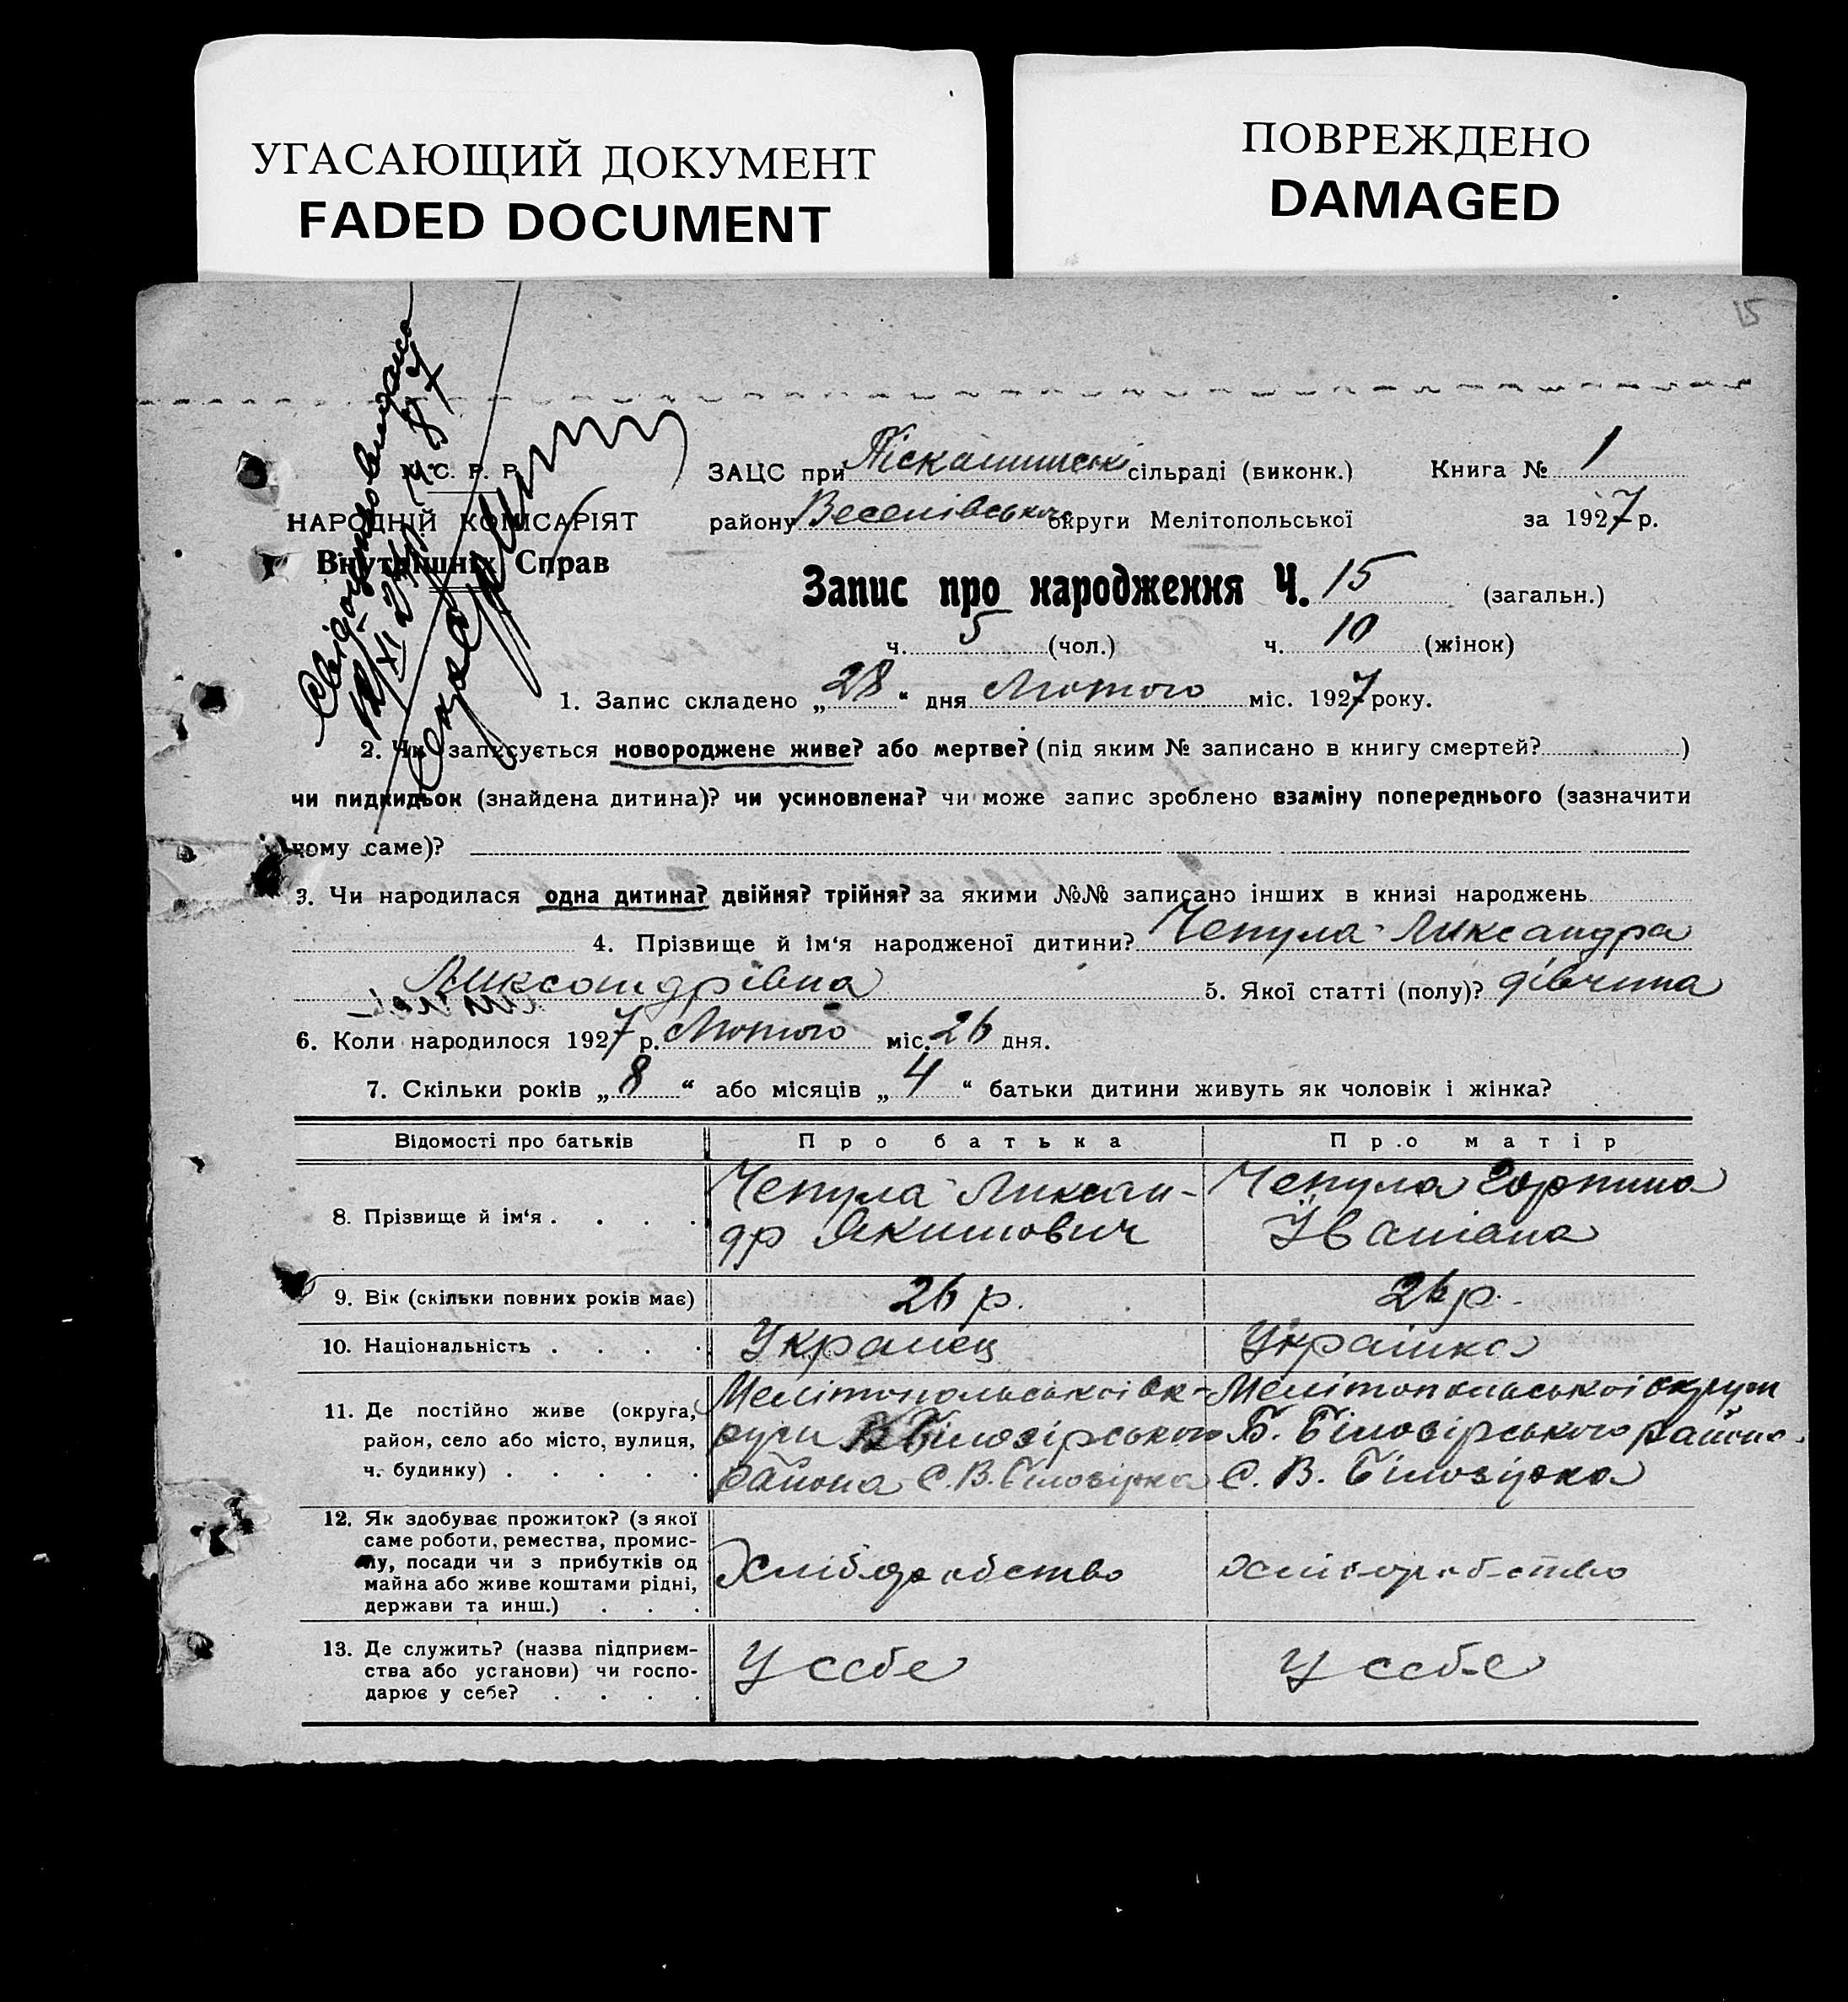 УГАСАЮЩИЙ ДОКУМЕНТ
FADED DOCUMENT
ПОВРЕЖДЕНО
DAMAGED
15
У. С. Р. Р.
НАРОДНІЙ КОМІСАРІЯТ
Внутрішніх Справ
ЗАЦС при сільраді (виконк.) Книга № 1
району Веселівського округи Мелітопольської за 1927 р.
Запис про народження Ч. 15 (загальн.)
ч. 5 (чол.) ч. 10 (жінок)
1. Запис складено „ 28 “ дня Лютого міс. 1927 року.
2. Чи записується новороджене живе? або мертве? (під яким № записано в книгу смертей? )
чи пидкидьок (знайдена дитина)? чи усиновлена? чи може запис зроблено взаміну попереднього (зазначити
чому саме)?
3. Чи народилася одна дитина? двійня? трійня? за якими №№ записано інших в книзі народжень
4. Прізвище й ім‘я народженої дитини? Чепула Ликсандра
Ликсандрівна 5. Якої статті (полу)? дівчина
6. Коли народилося 1927 р. Лютого міс. 26 дня.
7. Скільки років „ 8 “ або місяців „ 4 “ батьки дитини живуть як чоловік і жінка?
Відомості про батьків Про батька Про матір
8. Прізвище й ім‘я . . . . Чепула Ликсан-
др Якимович
Чепула Горпина
Іванівна
9. Вік (скільки повних років має) 26 р. 26 р.
10. Національність . . . . Українец Українка
11. Де постійно живе (округа,
район, село або місто, вулиця,
ч. будинку) . . . . .
Мелітопольської ок-
руги Білозірського
района С. В. Білозірка
Мелітопольської округи
Б. Білозірського района
С. В. Білозірка
12. Як здобуває прожиток? (з якої
саме роботи, ремества, промис-
лу, посади чи з прибутків од
майна або живе коштами рідні,
держави та инш.) . . .
Хліборобство
хліборобство
13. Де служить? (назва підприєм-
ства або установи) чи госпо-
дарює у себе? . . . .
У себе
У себе